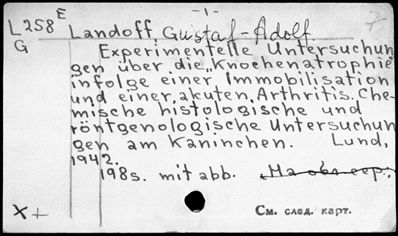 L258 E
G
-1-
Landoff, Gustaf-Adolf.
Experimentelle Untersuchun
gen über die, Knochenatrophie
infolge einer Immobilisation
und einer, akuten, Arthritis. Che-
mische histologische und
röntgenologische Untersuchun
gen am Kaninchen. Lund,
1942.
198s. mit abb.
X +
См. след. карт.